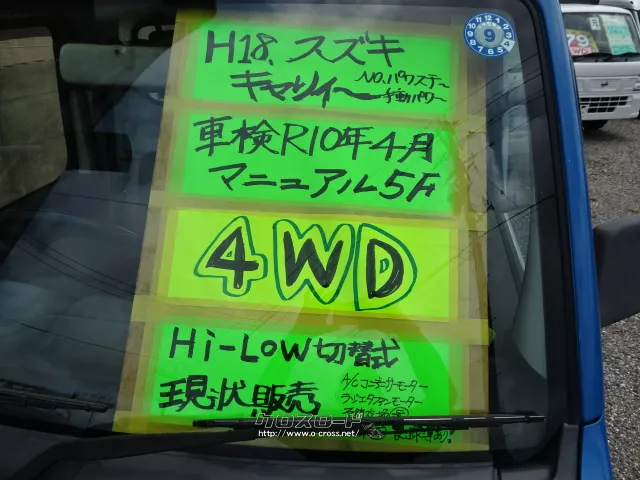 H18.スズキ
キャリイー NO.パワステー
手動パワー
車検R10年4月
マニュアル5F
4WD
Hi-LOW切替式
現状販売
A/Cコンデンサーモーター
ラジエタファンモーター
クロスロード
http://www.o-cross.net/
9
79